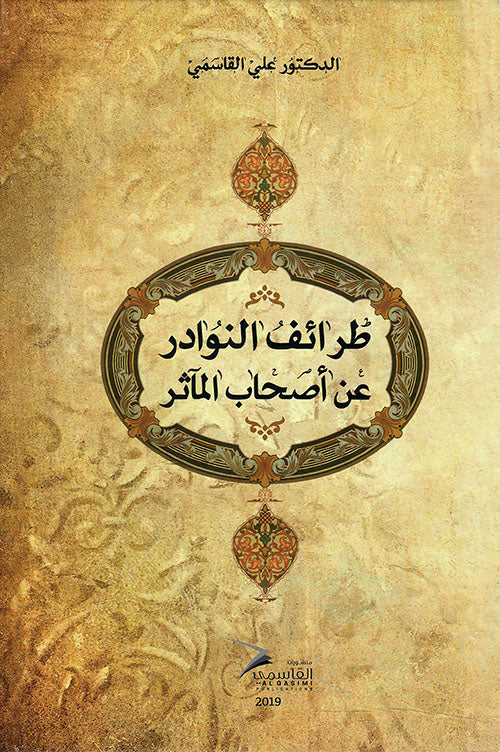 الدكتور علي القاسمي
طرائف النوادر
عن أصحاب المآثر
منشورات
القاسمي
AL QASIMI
PUBLICATIONS
2019